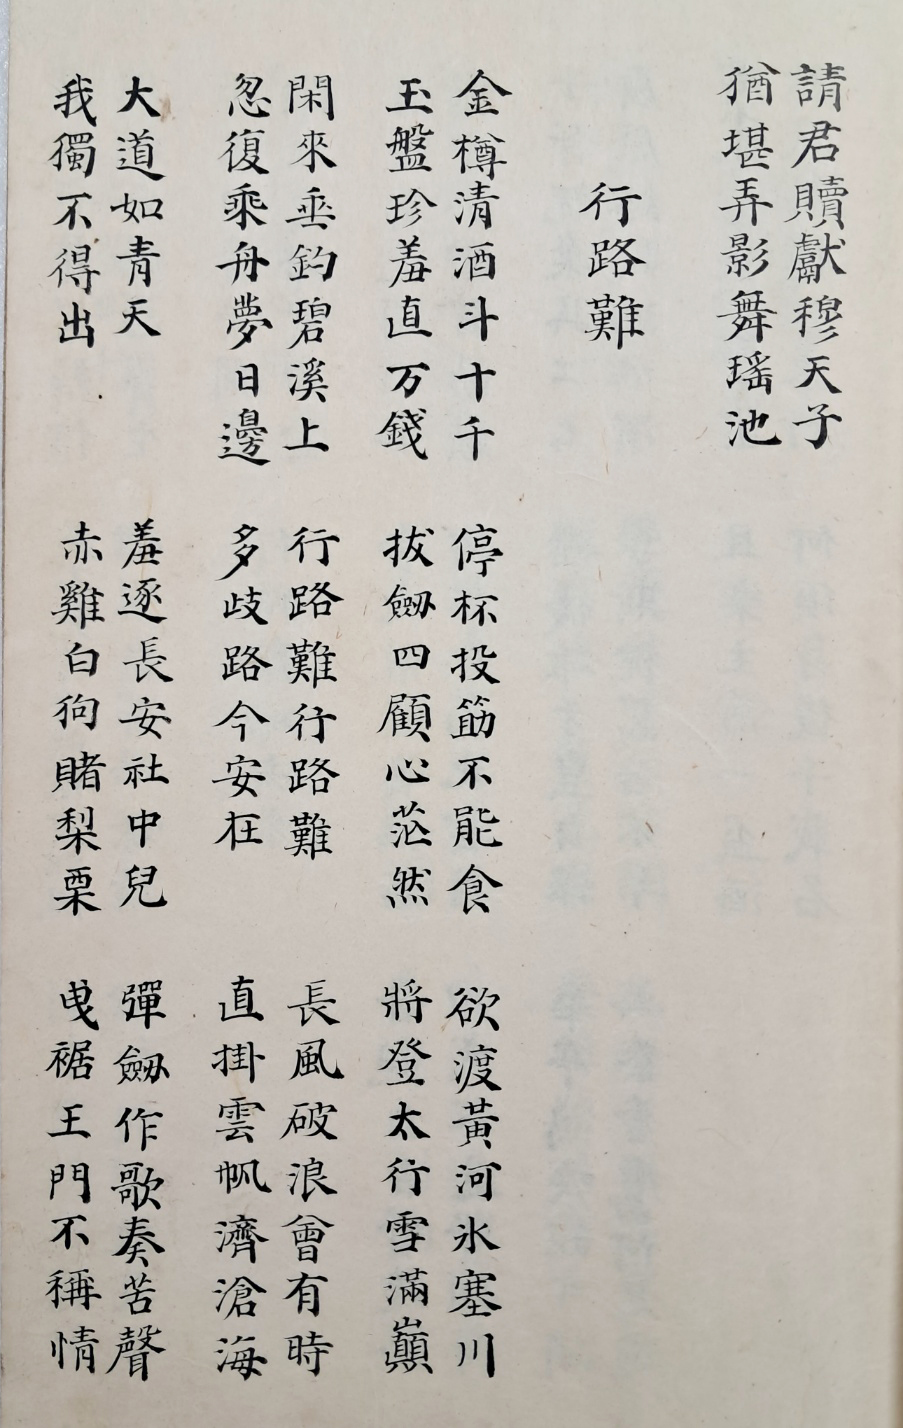 請君贖獻穆天子
猶堪弄影舞瑤池
行路難
金樽清酒斗十千
玉盤珍羞直万錢
停杯投筯不能食
拔劒四顧心茫然
欲渡黃河氷塞川
將登太行雪滿巔
閑來垂釣碧溪上
忽復乘舟夢日邊
行路難行路難
多歧路今安在
長風破浪會有時
直掛雲帆濟滄海
大道如青天
我獨不得出
羞逐長安社中兒
赤雞白狗賭梨栗
彈劒作歌奏苦聲
曳裾王門不稱情